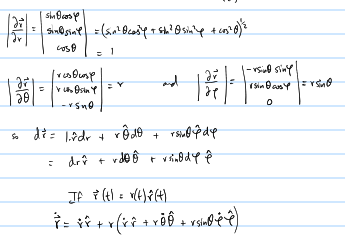 |∂r⃗/∂r| = |sinθcosφ sinθsinφ cosθ| = (sin²θcos²φ + sin²θsin²φ + cos²θ)^½
= 1
|∂r⃗/∂θ| = |rcosθcosφ rcosθsinφ -rsinθ| = r and |∂r⃗/∂φ| = |-rsinθsinφ rsinθcosφ 0| = rsinθ
so dr⃗ = 1.r̂dr + rθ̂dθ + rsinθφ̂dφ
= dr r̂ + rdθθ̂ + rsinθdφ φ̂
If r⃗(t) = r(t)r̂(t)
r⃗̇ = ṙr̂ + r(ṙr̂ + rθ̇θ̂ + rsinθφ̇φ̂)